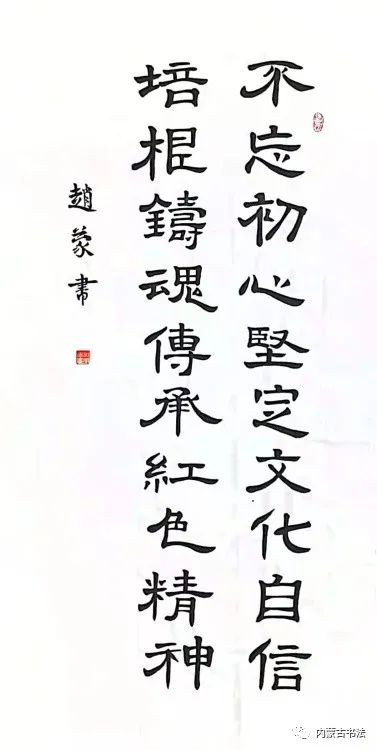 不忘初心堅定文化自信
培根鑄魂傳承紅色精神
趙蒙書
内蒙古书法